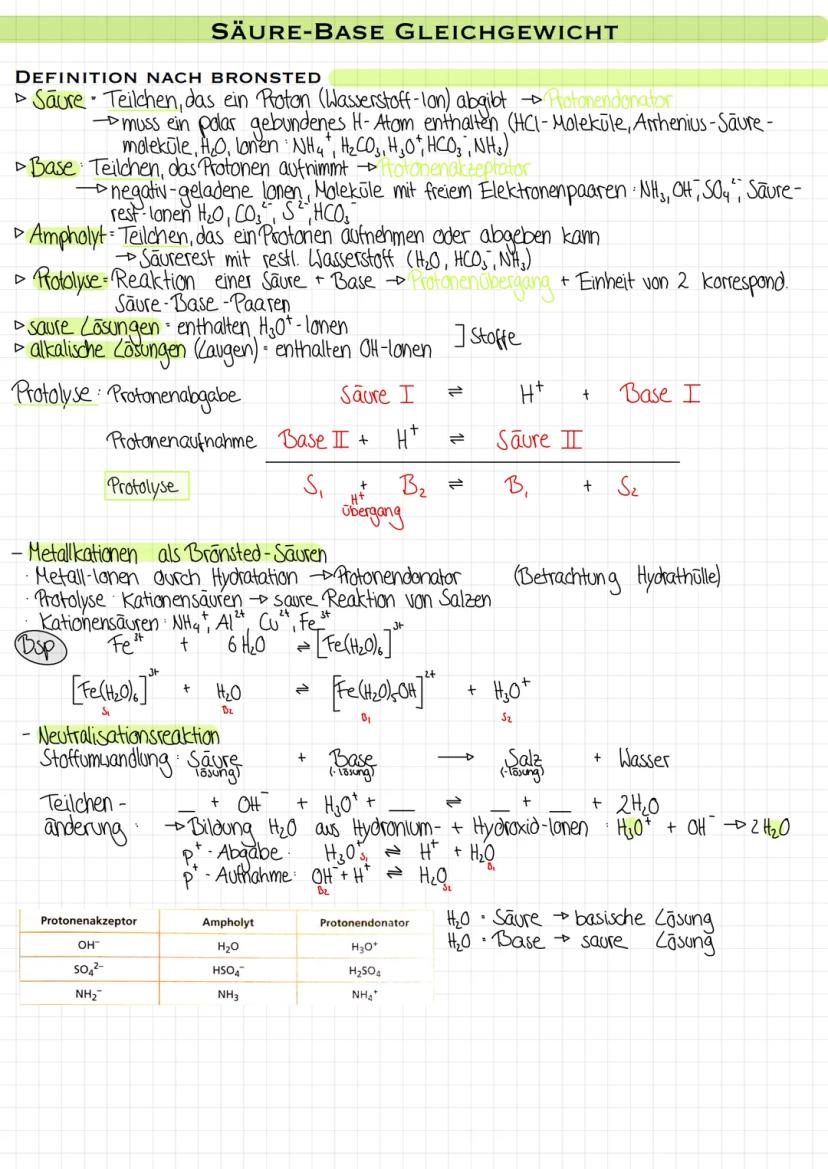 SÄURE-BASE GLEICHGEWICHT
DEFINITION NACH BRONSTED
▷ Säure = Teilchen, das ein Proton (Wasserstoff-Ion) abgibt → Protonendonator
→ muss ein polar gebundenes H-Atom enthalten (HCl-Moleküle, Arrhenius-Säure-
moleküle, H₂O, Ionen: NH₄⁺, H₂CO₃, H₃O⁺, HCO₃⁻, NH₃)
▷ Base: Teilchen, das Protonen aufnimmt → Protonenakzeptator
→ negativ-geladene Ionen, Moleküle mit freiem Elektronenpaaren: NH₃, OH⁻, SO₄²⁻, Säure-
rest-Ionen H₂O, CO₃²⁻, S²⁻, HCO₃⁻
▷ Ampholyt = Teilchen, das ein Protonen aufnehmen oder abgeben kann
→ Säurerest mit restl. Wasserstoff (H₂O, HCO₃⁻, NH₃)
▷ Protolyse = Reaktion einer Säure + Base → Protonenübergang + Einheit von 2 korrespond.
Säure-Base-Paaren
▷ saure Lösungen = enthalten H₃O⁺-Ionen
▷ alkalische Lösungen (Laugen) = enthalten OH-Ionen ] Stoffe
Protolyse: Protonenabgabe Säure I ⇌ H⁺ + Base I
Protonenaufnahme Base II + H⁺ ⇌ Säure II
Protolyse S₁ + B₂ ⇌ B₁ + S₂
H⁺
übergang
- Metallkationen als Brönsted-Säuren
· Metall-Ionen durch Hydratation → Protonendonator (Betrachtung Hydrathülle)
· Protolyse Kationensäuren → saure Reaktion von Salzen
· Kationensäuren: NH₄⁺, Al²⁺, Cu²⁺, Fe³⁺
Bsp Fe³⁺ + 6 H₂O ⇌ [Fe(H₂O)₆]³⁺
[Fe(H₂O)₆]³⁺ + H₂O ⇌ [Fe(H₂O)₅OH]²⁺ + H₃O⁺
S₁ B₂ B₁ S₂
- Neutralisationsreaktion
Stoffumwandlung: Säure + Base → Salz + Wasser
(lösung) (-lösung) (-lösung)
Teilchen- _ + OH⁻ + H₃O⁺ + _ ⇌ _ + _ + 2H₂O
änderung: → Bildung H₂O aus Hydronium- + Hydroxid-Ionen: H₃O⁺ + OH⁻ → 2 H₂O
p⁺-Abgabe: H₃O⁺ S₁ ⇌ H⁺ + H₂O B₁
p⁺-Aufnahme: OH⁻ + H⁺ ⇌ H₂O S₂
B₂
Protonenakzeptor Ampholyt Protonendonator
OH⁻ H₂O H₃O⁺
SO₄²⁻ HSO₄⁻ H₂SO₄
NH₂⁻ NH₃ NH₄⁺
H₂O = Säure → basische Lösung
H₂O = Base → saure Lösung